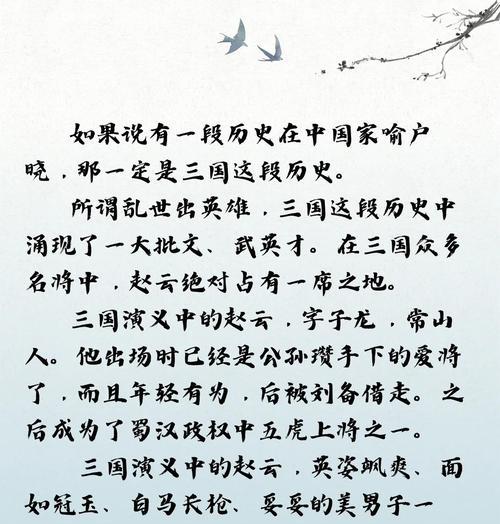 如果说有一段历史在中国家喻户
晓，那一定是三国这段历史。
所谓乱世出英雄，三国这段历史中
涌现了一大批文、武英才。在三国众多
名将中，赵云绝对占有一席之地。
三国演义中的赵云，字子龙，常山
人。他出场时已经是公孙瓒手下的爱将
了，而且年轻有为，后被刘备借走。之
后成为了蜀汉政权中五虎上将之一。
三国演义中的赵云，英姿飒爽、面
如冠玉、白马长枪、妥妥的美男子一